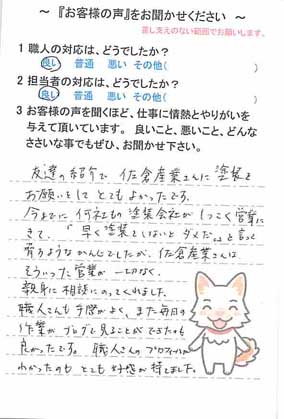 ～ 『お客様の声』をお聞かせください ～
差し支えのない範囲でお願いします。
1 職人の対応は、どうでしたか？
良し 普通 悪い その他( )
2 担当者の対応は、どうでしたか？
良し 普通 悪い その他( )
3 お客様の声を聞くほど、仕事に情熱とやりがいを
与えて頂いています。 良いこと、悪いこと、どんな
ささいな事でもぜひ、お聞かせ下さい。
友達の紹介で 佐倉産業さんに 塗装を
お願いをして とても よかったです。
今までに 何社もの 塗装会社が しつこく 営業に
きて、「早く 塗装をしないと ダメだ。」と言って
くるようなかんじでしたが、佐倉産業さんは
そういった 営業が 一切なく、
親身に 相談にのってくれました。
職人さんも 手際がよく、また 毎日の
作業が ブログで 見ることができたのも
良かったです。 職人さんの プロフィールが
わかったのも とても 好感が 持てました。